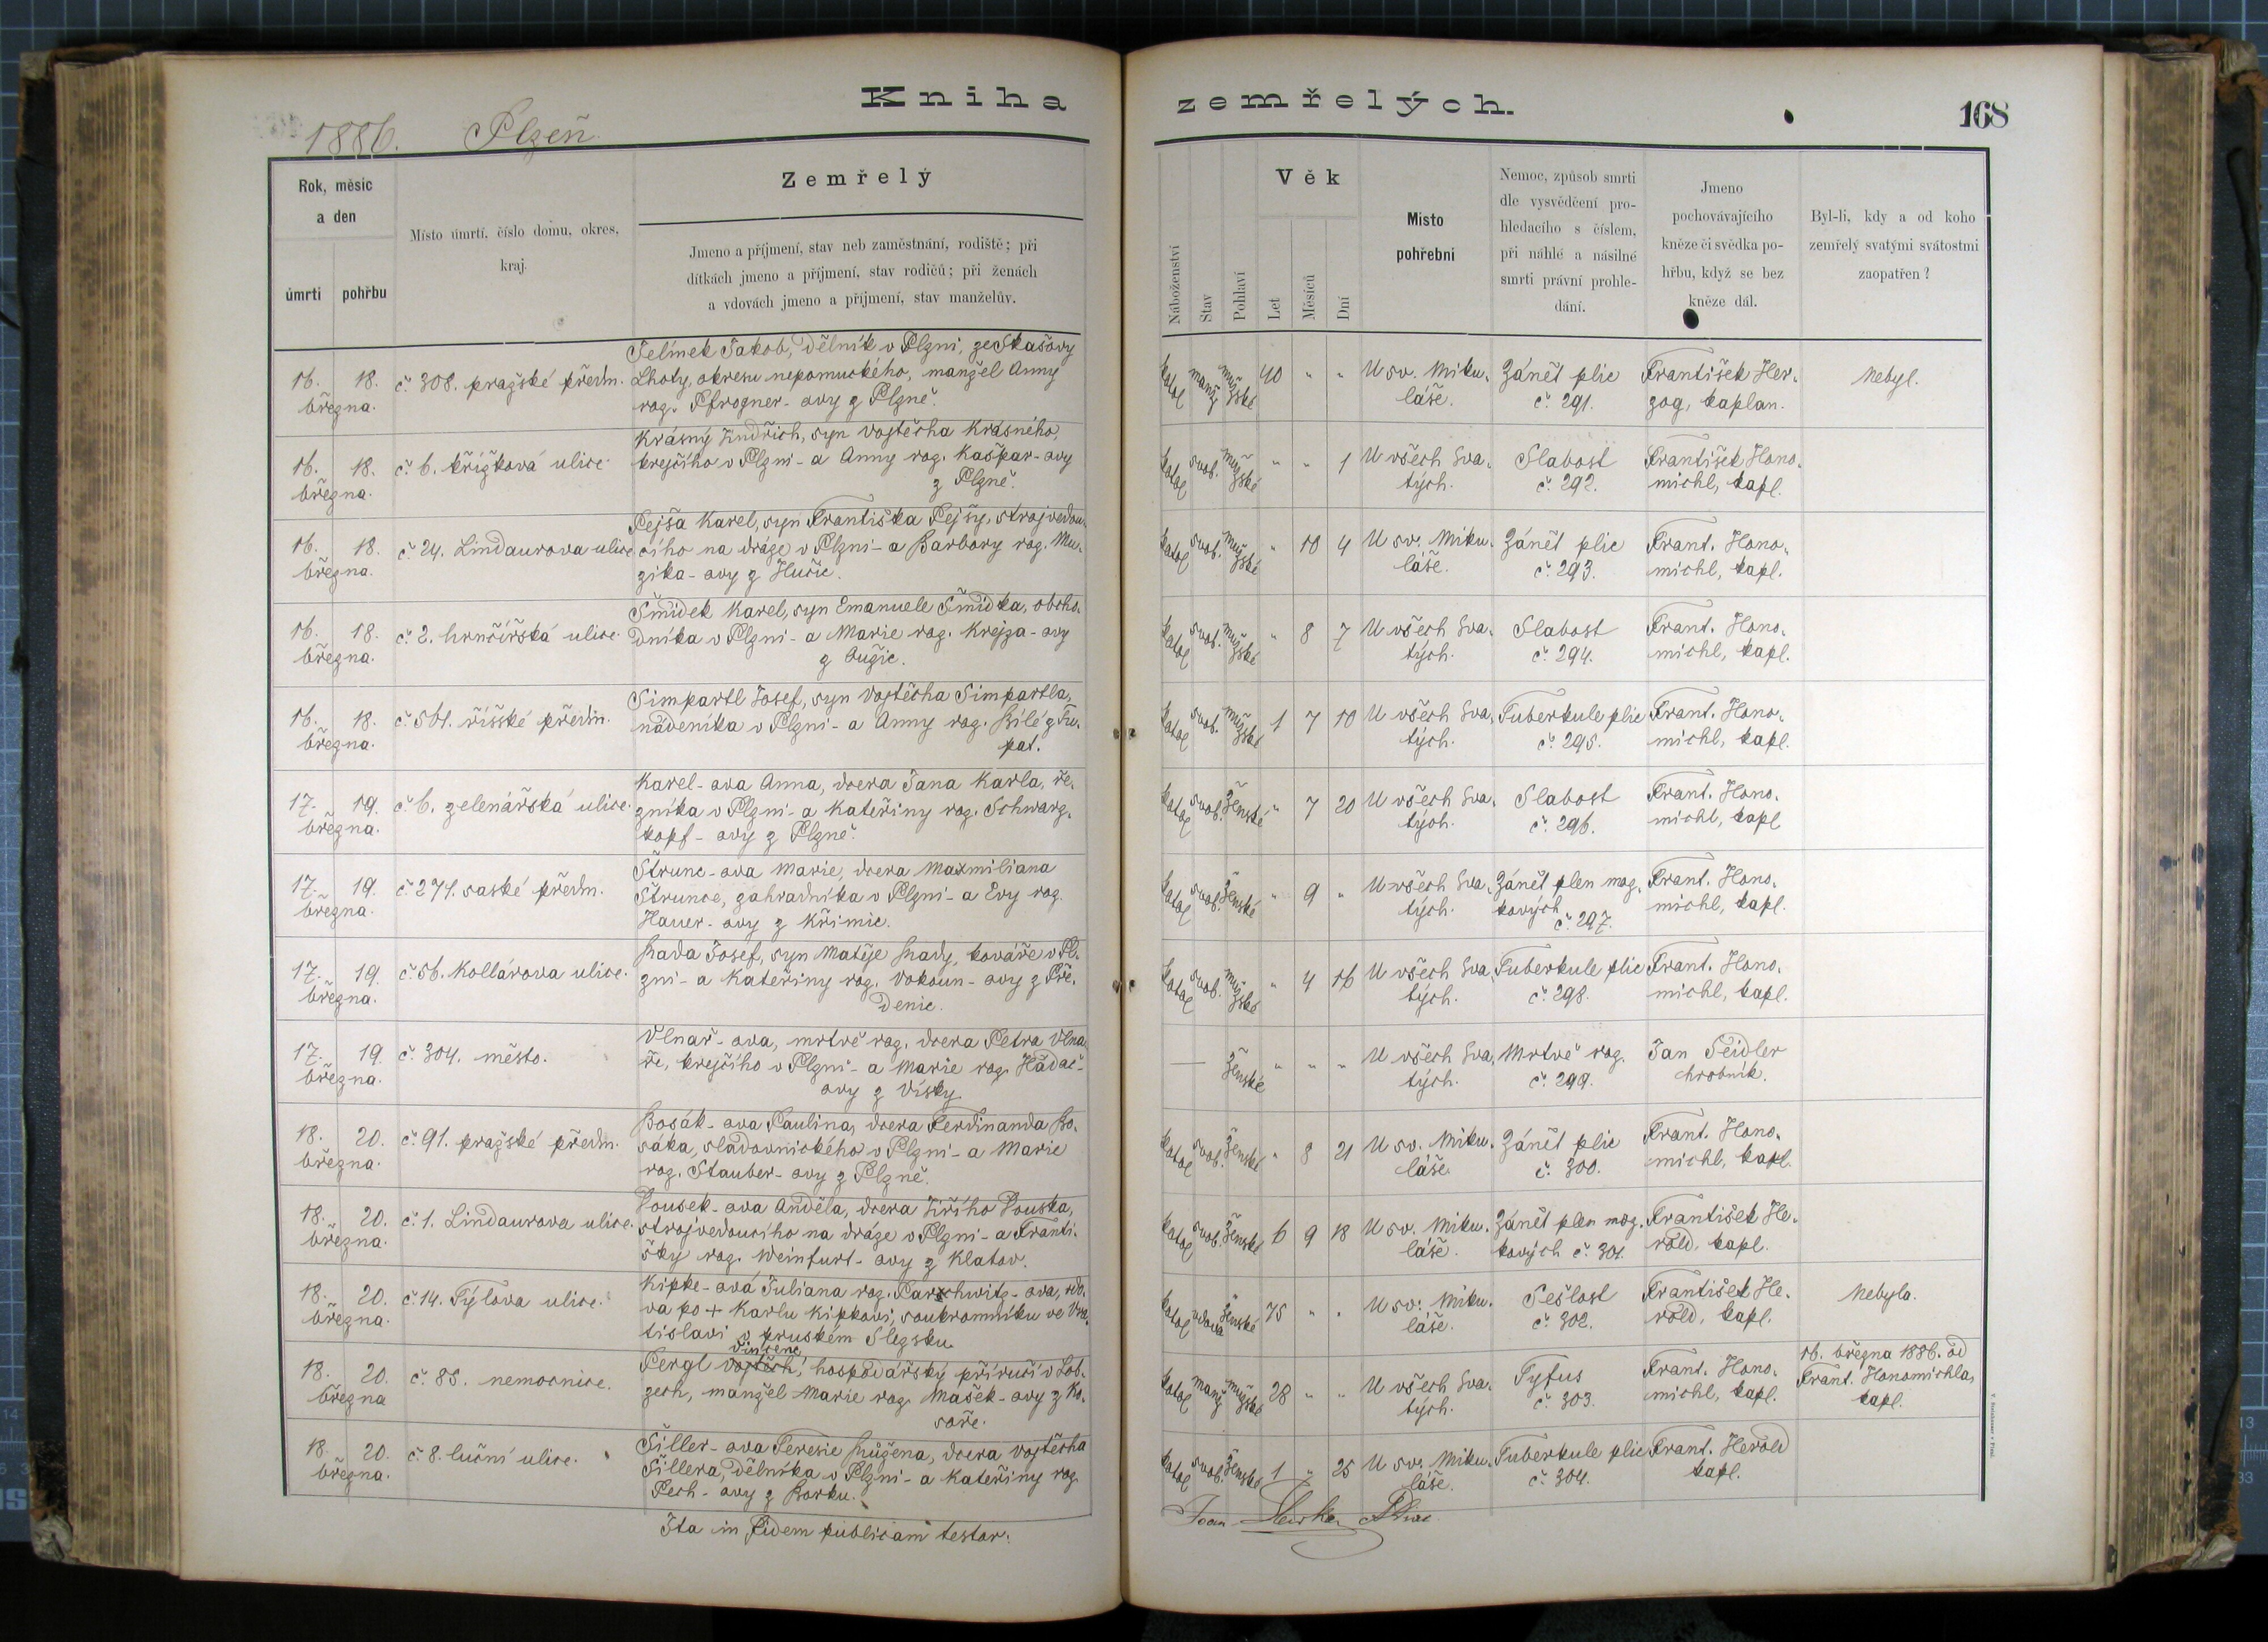 Kniha zemřelých.
168
1886. Plzeň.
Rok, měsíc a den
úmrtí
pohřbu
Místo úmrtí, číslo domu, okres, kraj.
Zemřelý
Jmeno a příjmení, stav neb zaměstnání, rodiště; při
dítkách jmeno a příjmení, stav rodičů; při ženách
a vdovách jmeno a příjmení, stav manželův.
Náboženství
Stav
Pohlaví
Věk
Let
Měsíců
Dní
Místo
pohřební
Nemoc, způsob smrti
dle vysvědčení pro-
hledacího s číslem,
při náhlé a násilné
smrti právní prohle-
dání.
Jmeno
pochovávajícího
kněze či svědka po-
hřbu, když se bez
kněze dál.
Byl-li, kdy a od koho
zemřelý svatými svátostmi
zaopatřen?
16. března. 18. č. 308. pražské předm.
Jelínek Jakob, dělník v Plzni, ze Skašovy
Lhoty, okresu nepomuckého, manžel Anny
roz. Pfrogner-ovy z Plzně.
katol manž mužské 40 " " U sv. Mikuláše. Zánět plic č. 291. František Herzog, kaplan. Nebyl.
16. března. 18. č. 6. křížková ulice.
Krásný Jindřich, syn Vojtěcha Krásného,
krejčího v Plzni - a Anny roz. Kašpar-ovy
z Plzně.
katol svob. mužské " " 1 U všech Svatých. Slabost č. 292. František Honomichl, kapl.
16. března. 18. č. 24. Lindaurova ulice
Pejša Karel, syn Františka Pejšy, strojvedou-
cího na dráze v Plzni - a Barbory roz. Mu-
zika-ovy z Hučic.
katol svob. mužské " 10 4 U sv. Mikuláše. Zánět plic č. 293. Frant. Honomichl, kapl.
16. března. 18. č. 2. hrnčířská ulice.
Šmídek Karel, syn Emanuele Šmídka, obcho-
dníka v Plzni - a Marie roz. Krejza-ovy
z Bužic.
katol svob. mužské " 8 7 U všech Svatých. Slabost č. 294. Frant. Honomichl, kapl.
16. března. 18. č. 561. říšské předm.
Simpartl Josef, syn Vojtěcha Simpartla,
nádeníka v Plzni - a Anny roz. Bílé z Tu-
pat.
katol svob. mužské 1 7 10 U všech Svatých. Tuberkule plic č. 295. Frant. Honomichl, kapl.
17. března. 19. č. 6. zelenářská ulice.
Karel-ova Anna, dcera Jana Karla, ře-
zníka v Plzni - a Kateřiny roz. Schwarz-
kopf-ovy z Plzně.
katol svob. ženské " 7 20 U všech Svatých. Slabost č. 296. Frant. Honomichl, kapl
17. března. 19. č. 271. saské předm.
Štrunc-ova Marie, dcera Maxmiliana
Štrunce, zahradníka v Plzni - a Evy roz.
Hauer-ovy z Křimic.
katol svob. ženské " 9 " U všech Svatých. Zánět plen mozkových č. 297. Frant. Honomichl, kapl.
17. března. 19. č. 56. Kollárova ulice.
Rada Josef, syn Matěje Rady, kováře v Pl-
zni - a Kateřiny roz. Vokoun-ovy z Pře-
denic.
katol svob. mužské " 4 16 U všech Svatých. Tuberkule plic č. 298. Frant. Honomichl, kapl.
17. března. 19. č. 304. město.
Vlnař-ova, mrtvě roz. dcera Petra Vlna-
ře, krejčího v Plzni - a Marie roz. Hádač-
ovy z Vísky
— ženské " " " U všech Svatých. Mrtvě roz. č. 299. Jan Seidler hrobník.
18. března. 20. č. 91. pražské předm.
Bosák-ova Paulina, dcera Ferdinanda Bo-
sáka, sladovnického v Plzni - a Marie
roz. Stauber-ovy z Plzně.
katol svob. ženské " 8 21 U sv. Mikuláše. Zánět plic č. 300. Frant. Honomichl, kapl.
18. března. 20. č. 1. Lindaurova ulice.
Pousek-ova Anděla, dcera Jiřího Pouska,
strojvedoucího na dráze v Plzni - a Franti-
šky roz. Weinfurt-ovy z Klatov.
katol svob. ženské 6 9 18 U sv. Mikuláše. Zánět plen mozkových č. 301. František Herold, kapl.
18. března. 20. č. 14. Týlova ulice.
Kipke-ová Juliana roz. Parschwitz-ova, vdo-
va po + Karlu Kipkovi, soukromníku ve Vra-
tislavi v pruském Slezsku.
katol vdova ženské 75 " " U sv. Mikuláše. Sešlost č. 302. František Herold, kapl. Nebyla.
18. března 20. č. 85. nemocnice.
Vincenc
Pergl Vojtěch, hospodářský příručí v Lob-
zech, manžel Marie roz. Mašek-ovy z Ko-
soře.
katol manž mužské 28 " " U všech Svatých. Tyfus č. 303. Frant. Honomichl, kapl. 16. března 1886. od Frant. Honomichla, kapl.
18. března. 20. č. 8. luční ulice.
Šiller-ova Teresie Růžena, dcera Vojtěcha
Šillera, dělníka v Plzni - a Kateřiny roz.
Pech-ovy z Borku.
katol svob. ženské 1 " 25 U sv. Mikuláše. Tuberkule plic č. 304. Frant. Herold kapl.
Ita in fidem publicam testor: